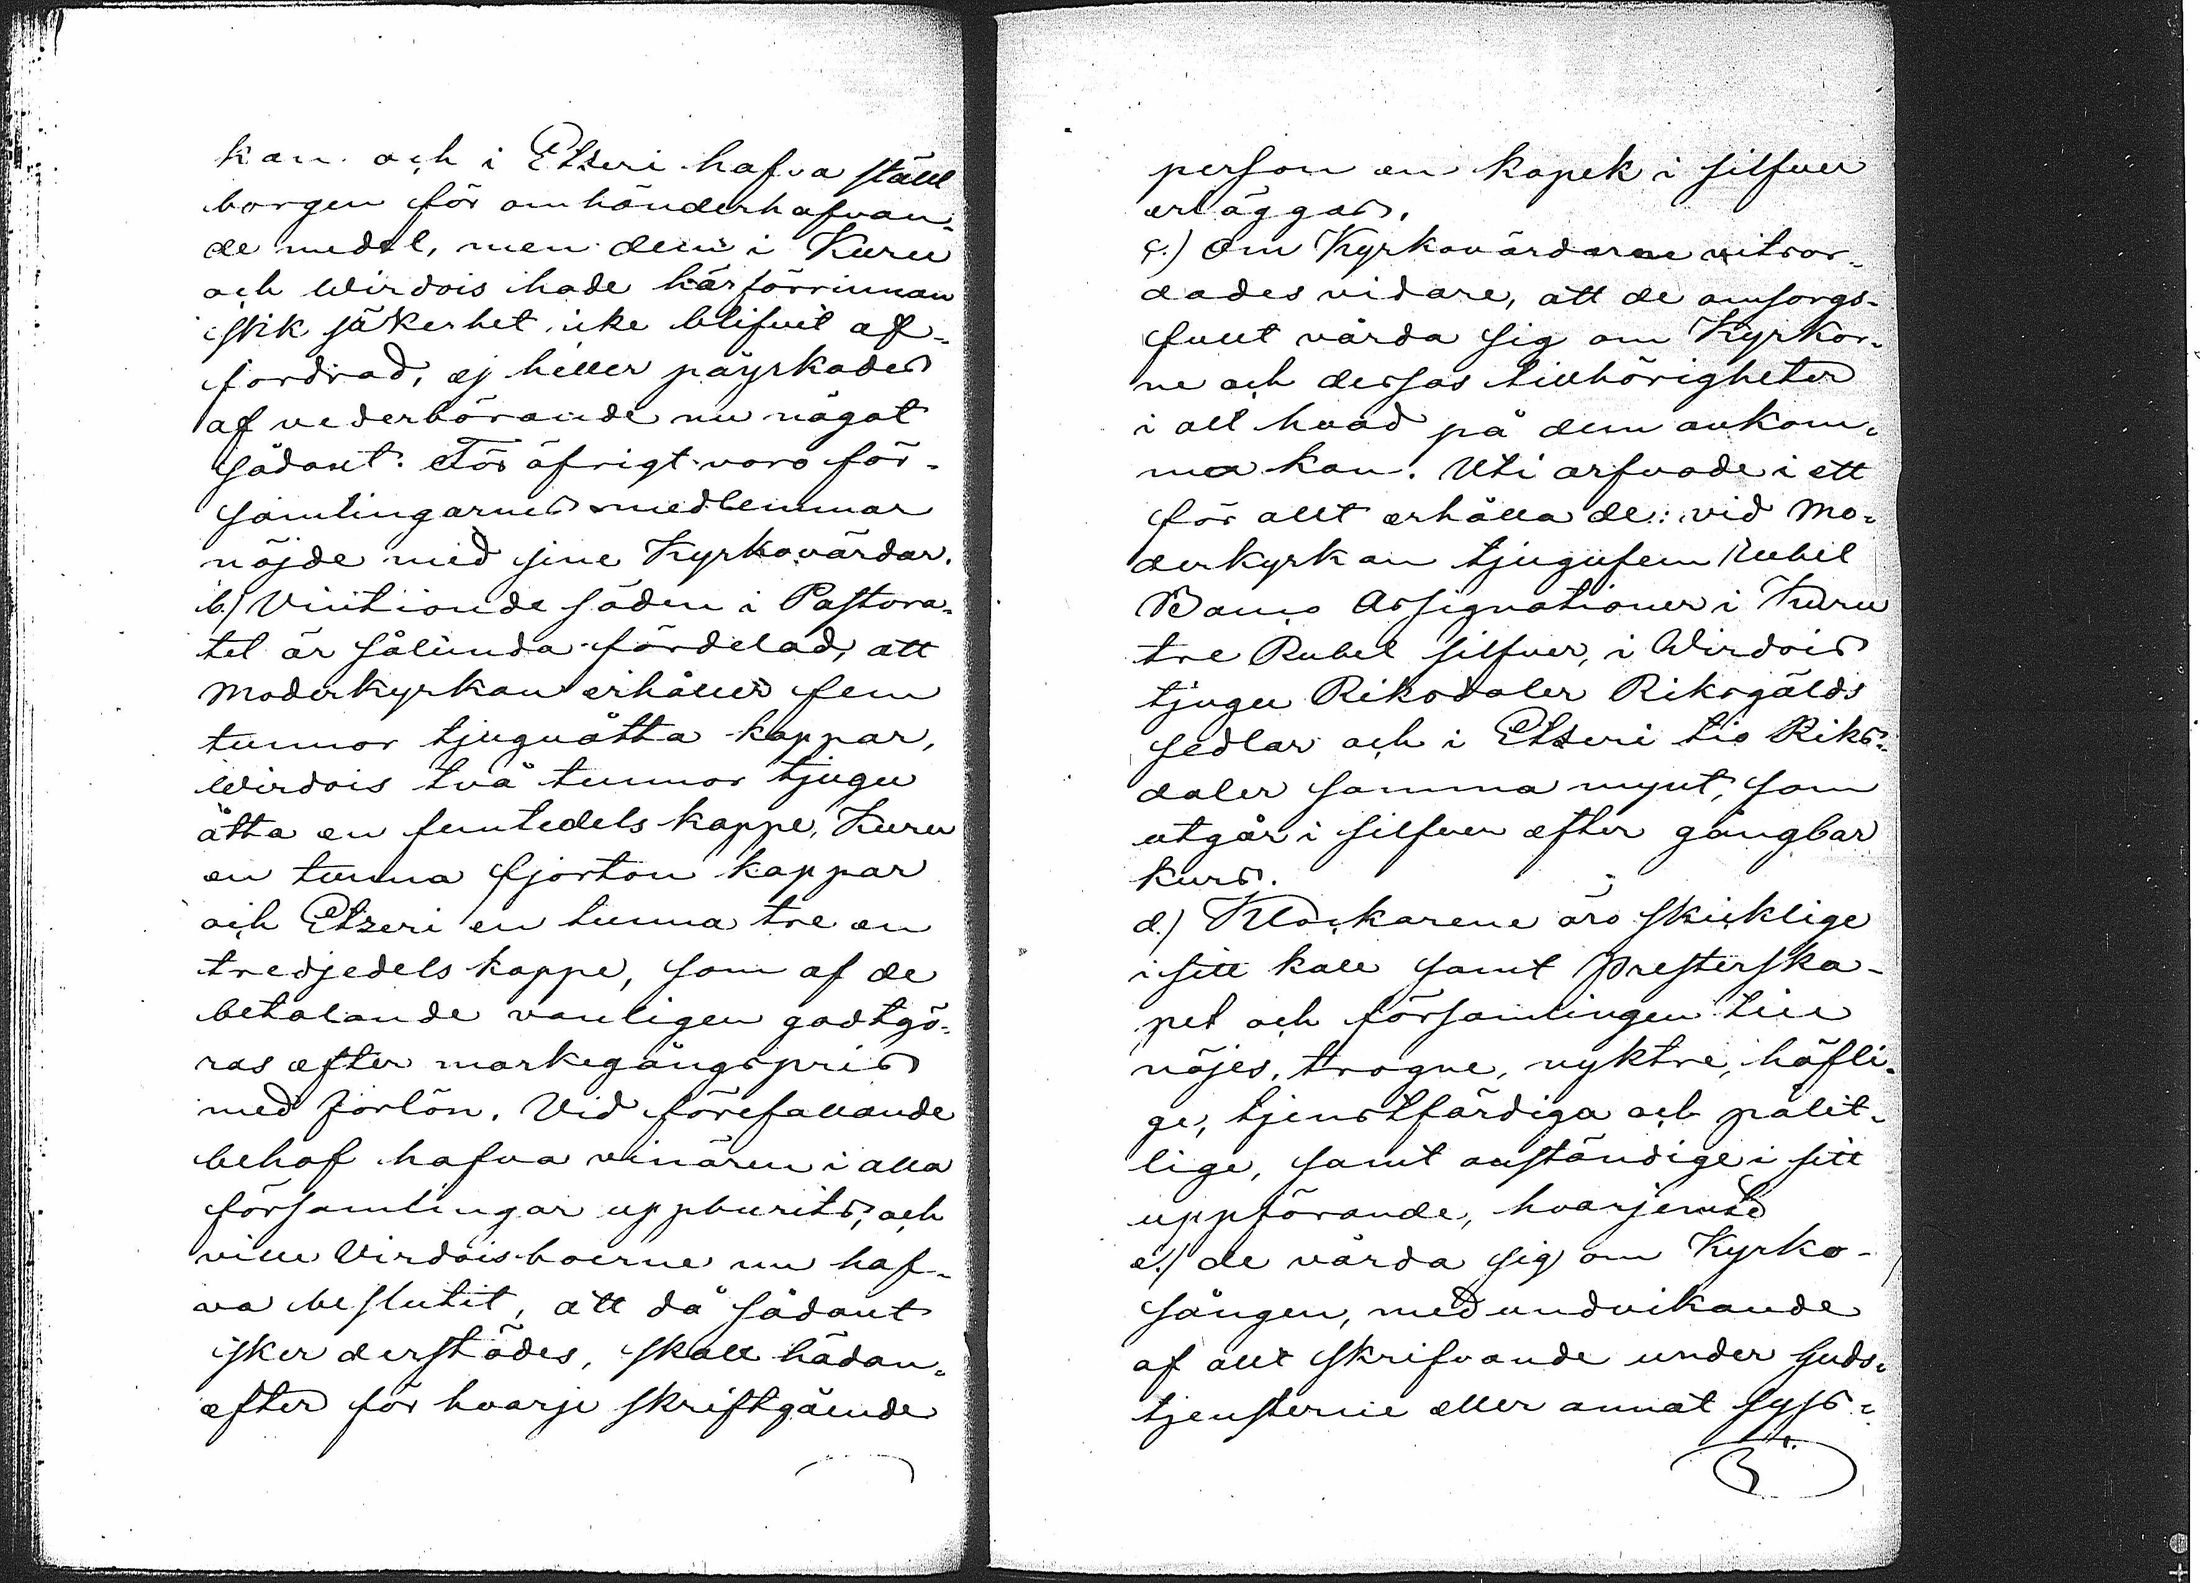 kan och i Etseri hafva ställt
borgen för omhänderhafvan-
de medel, men dem i Kuru
och Wirdois hade härförrinnan
slik säkerhet icke blifvit af-
fordrad, ej heller påyrkades
af vederbörande nu något
sådant. För öfrigt voro för-
samlingarnes medlemmar
nöjde med sine Kyrkovärdar.
b.) Vintionde säden i Pastora-
tet är sålunda fördelad, att
Moderkyrkan erhåller fem
tunnor tjuguåtta kappar,
Wirdois två tunnor tjugu
åtta en femtedels kappe, Kuru
en tunna fjorton kappar
och Etseri en tunna tre en
tredjedels kappe, som af de
betalande vanligen godtgö-
ras efter markegångspris
med forlön. Vid förefallande
behof hafva vinören i alla
församlingar uppburits, och
ville Virdoisboerne nu haf-
va beslutit, att då sådant
sker derstädes, skall hädan-
efter för hvarje skriftgående
person en kopek i silfver
erläggas.
c.) Om Kyrkovärdarne vitsor-
dades vidare, att de omsorgs-
fullt vårda sig om Kyrkor-
ne och dessas tillhörigheter
i allt hvad på dem ankom-
ma kan. Uti arfvode i ett
för allt erhålla de: vid Mo-
derkyrkan tjugufem Rubel
Banco Assignationer i Kuru
tre Rubel silfver, i Wirdois
tjugu Riksdaler Riksgälds
sedlar och i Etseri tio Riks-
daler samma mynt, som
utgår i silfver efter gångbar
kurs.
d.) Klockarene äro skicklige
i sitt kall samt Presterska-
pet och församlingen till
nöjes, trogne, nyktre, höfli-
ge, tjenstfärdiga och pålit-
lige, samt anständige i sitt
uppförande, hvarjemte
e.) de vårda sig om Kyrko-
sången, med undvikande
af allt skrifvande under Guds-
tjensterne eller annat syss-